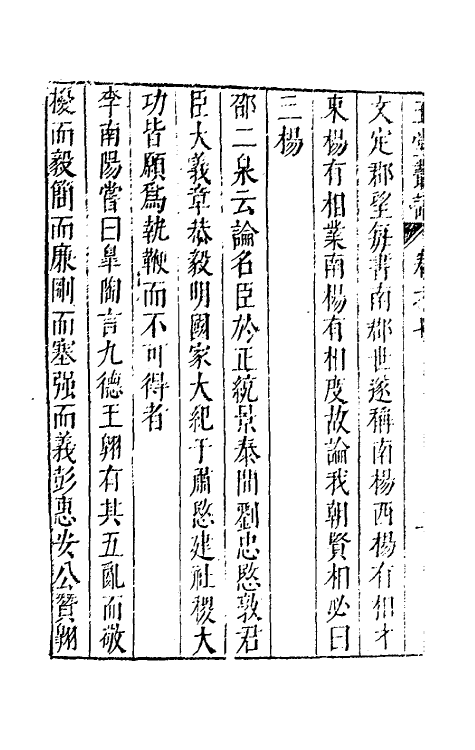 玉堂叢語 卷之七
文定郡望每書南郡世遂稱南楊西楊有相才
東楊有相業南楊有相度故論我朝賢相必曰
三楊
邵二泉云論名臣於正統景泰間劉忠愍敦君
臣大義章恭毅明國家大紀于肅愍建社稷大
功皆願爲執鞭而不可得者
李南陽嘗曰臯陶言九德王翺有其五亂而敬
擾而毅簡而廉剛而塞强而義彭惠安公贊翺